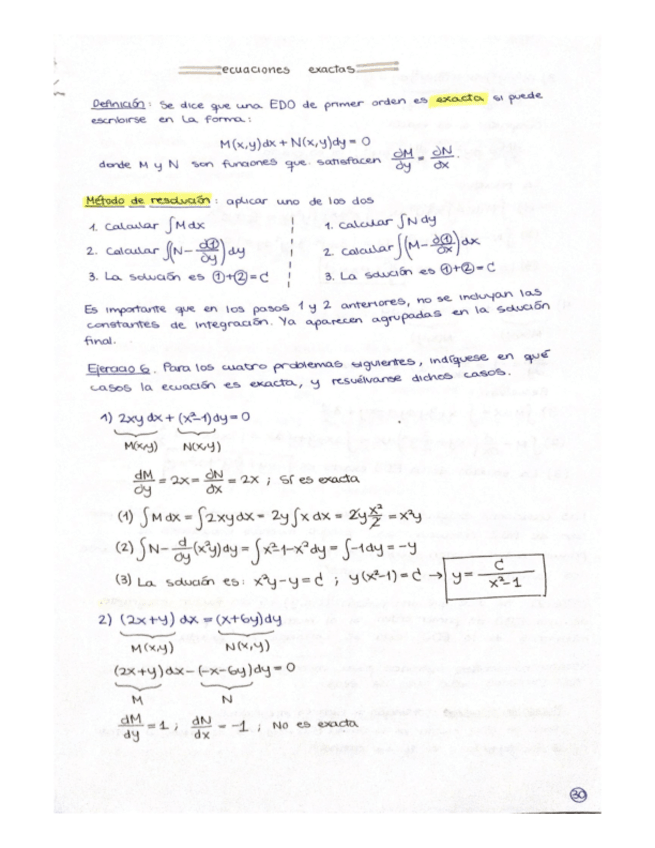 ecuaciones exactas
Definición: Se dice que una EDO de primer orden es exacta si puede
escribirse en la forma:
M(x,y)dx + N(x,y)dy = 0
donde M y N son funciones que satisfacen ∂M/∂y = ∂N/∂x.
Método de resolución: aplicar uno de los dos
1. Calcular ∫M dx
2. Calcular ∫(N - ∂①/∂y) dy
3. La solución es ①+②=C
1. Calcular ∫N dy
2. Calcular ∫(M - ∂①/∂x) dx
3. La solución es ①+②=C
Es importante que en los pasos 1 y 2 anteriores, no se incluyan las
constantes de integración. Ya aparecen agrupadas en la solución
final.
Ejercicio 6. Para los cuatro problemas siguientes, indíquese en qué
casos la ecuación es exacta, y resuélvanse dichos casos.
1) 2xy dx + (x²-1)dy = 0
M(x,y) N(x,y)
dM/dy = 2x = dN/dx = 2x ; SÍ es exacta
(1) ∫M dx = ∫2xy dx = 2y∫x dx = 2y x²/2 = x²y
(2) ∫N - d/dy (x²y)dy = ∫x²-1-x² dy = ∫-1dy = -y
(3) La solución es: x²y - y = C ; y(x²-1) = C → y = C/x²-1
2) (2x+y) dx = (x+6y)dy
M(x,y) N(x,y)
(2x+y)dx - (-x-6y)dy = 0
M N
dM/dy = 1 ; dN/dx = -1 ; No es exacta
30